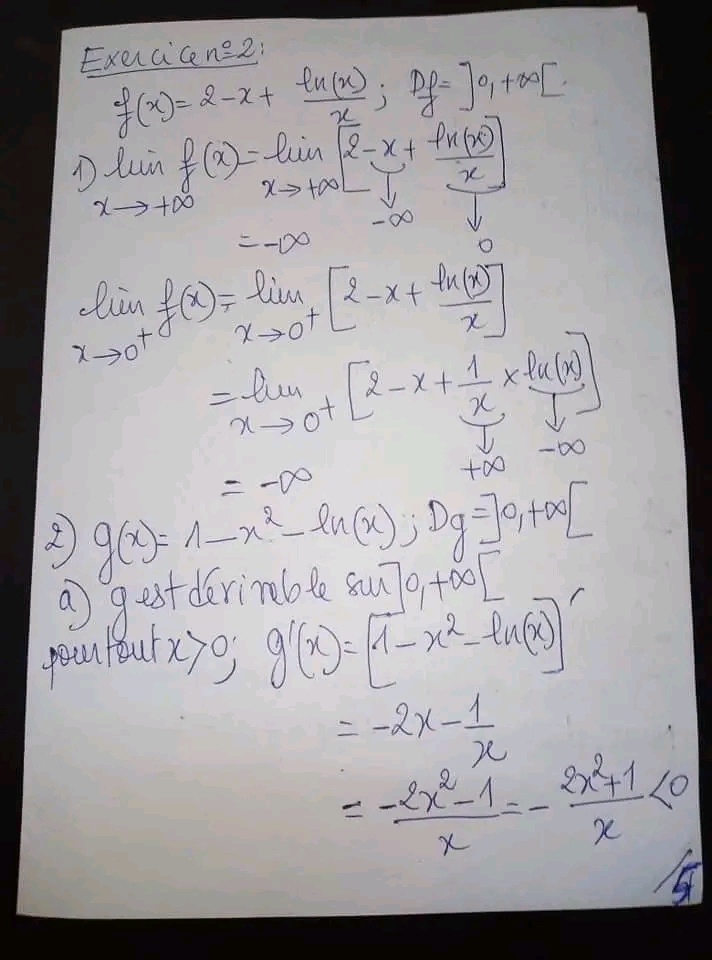 Exercice n°2:
f(x)= 2-x+ ln(x)/x ; Df= ]0,+∞[.
1) lim f(x)= lim [2-x+ ln(x)/x]
x→+∞ x→+∞ ↓ ↓
-∞ 0
= -∞
lim f(x)= lim [2-x+ ln(x)/x]
x→0⁺ x→0⁺
= lim [2-x+ 1/x × ln(x)]
x→0⁺ ↓ ↓
+∞ -∞
= -∞
2) g(x)= 1-x²-ln(x); Dg=]0,+∞[
a) g est dérivable sur ]0,+∞[
pour tout x>0; g'(x)= [1-x²-ln(x)]'
= -2x - 1/x
= -2x²-1/x = - 2x²+1/x <0
/5